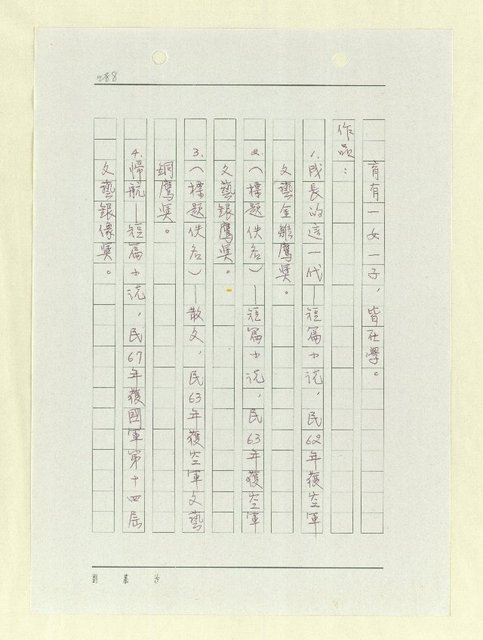 288
育有一女一子，皆在學。
作品：
1.成長的這一代—短篇小說，民62年獲空軍
文藝金鵰鷹獎。
2.（標題佚名）—短篇小說，民63年獲空軍
文藝銀鷹獎。
3.（標題佚名）—散文，民63年獲空軍文藝
銅鷹獎。
4.歸航—短篇小說，民67年獲國軍第十四屆
文藝銀像獎。
劉慕沙